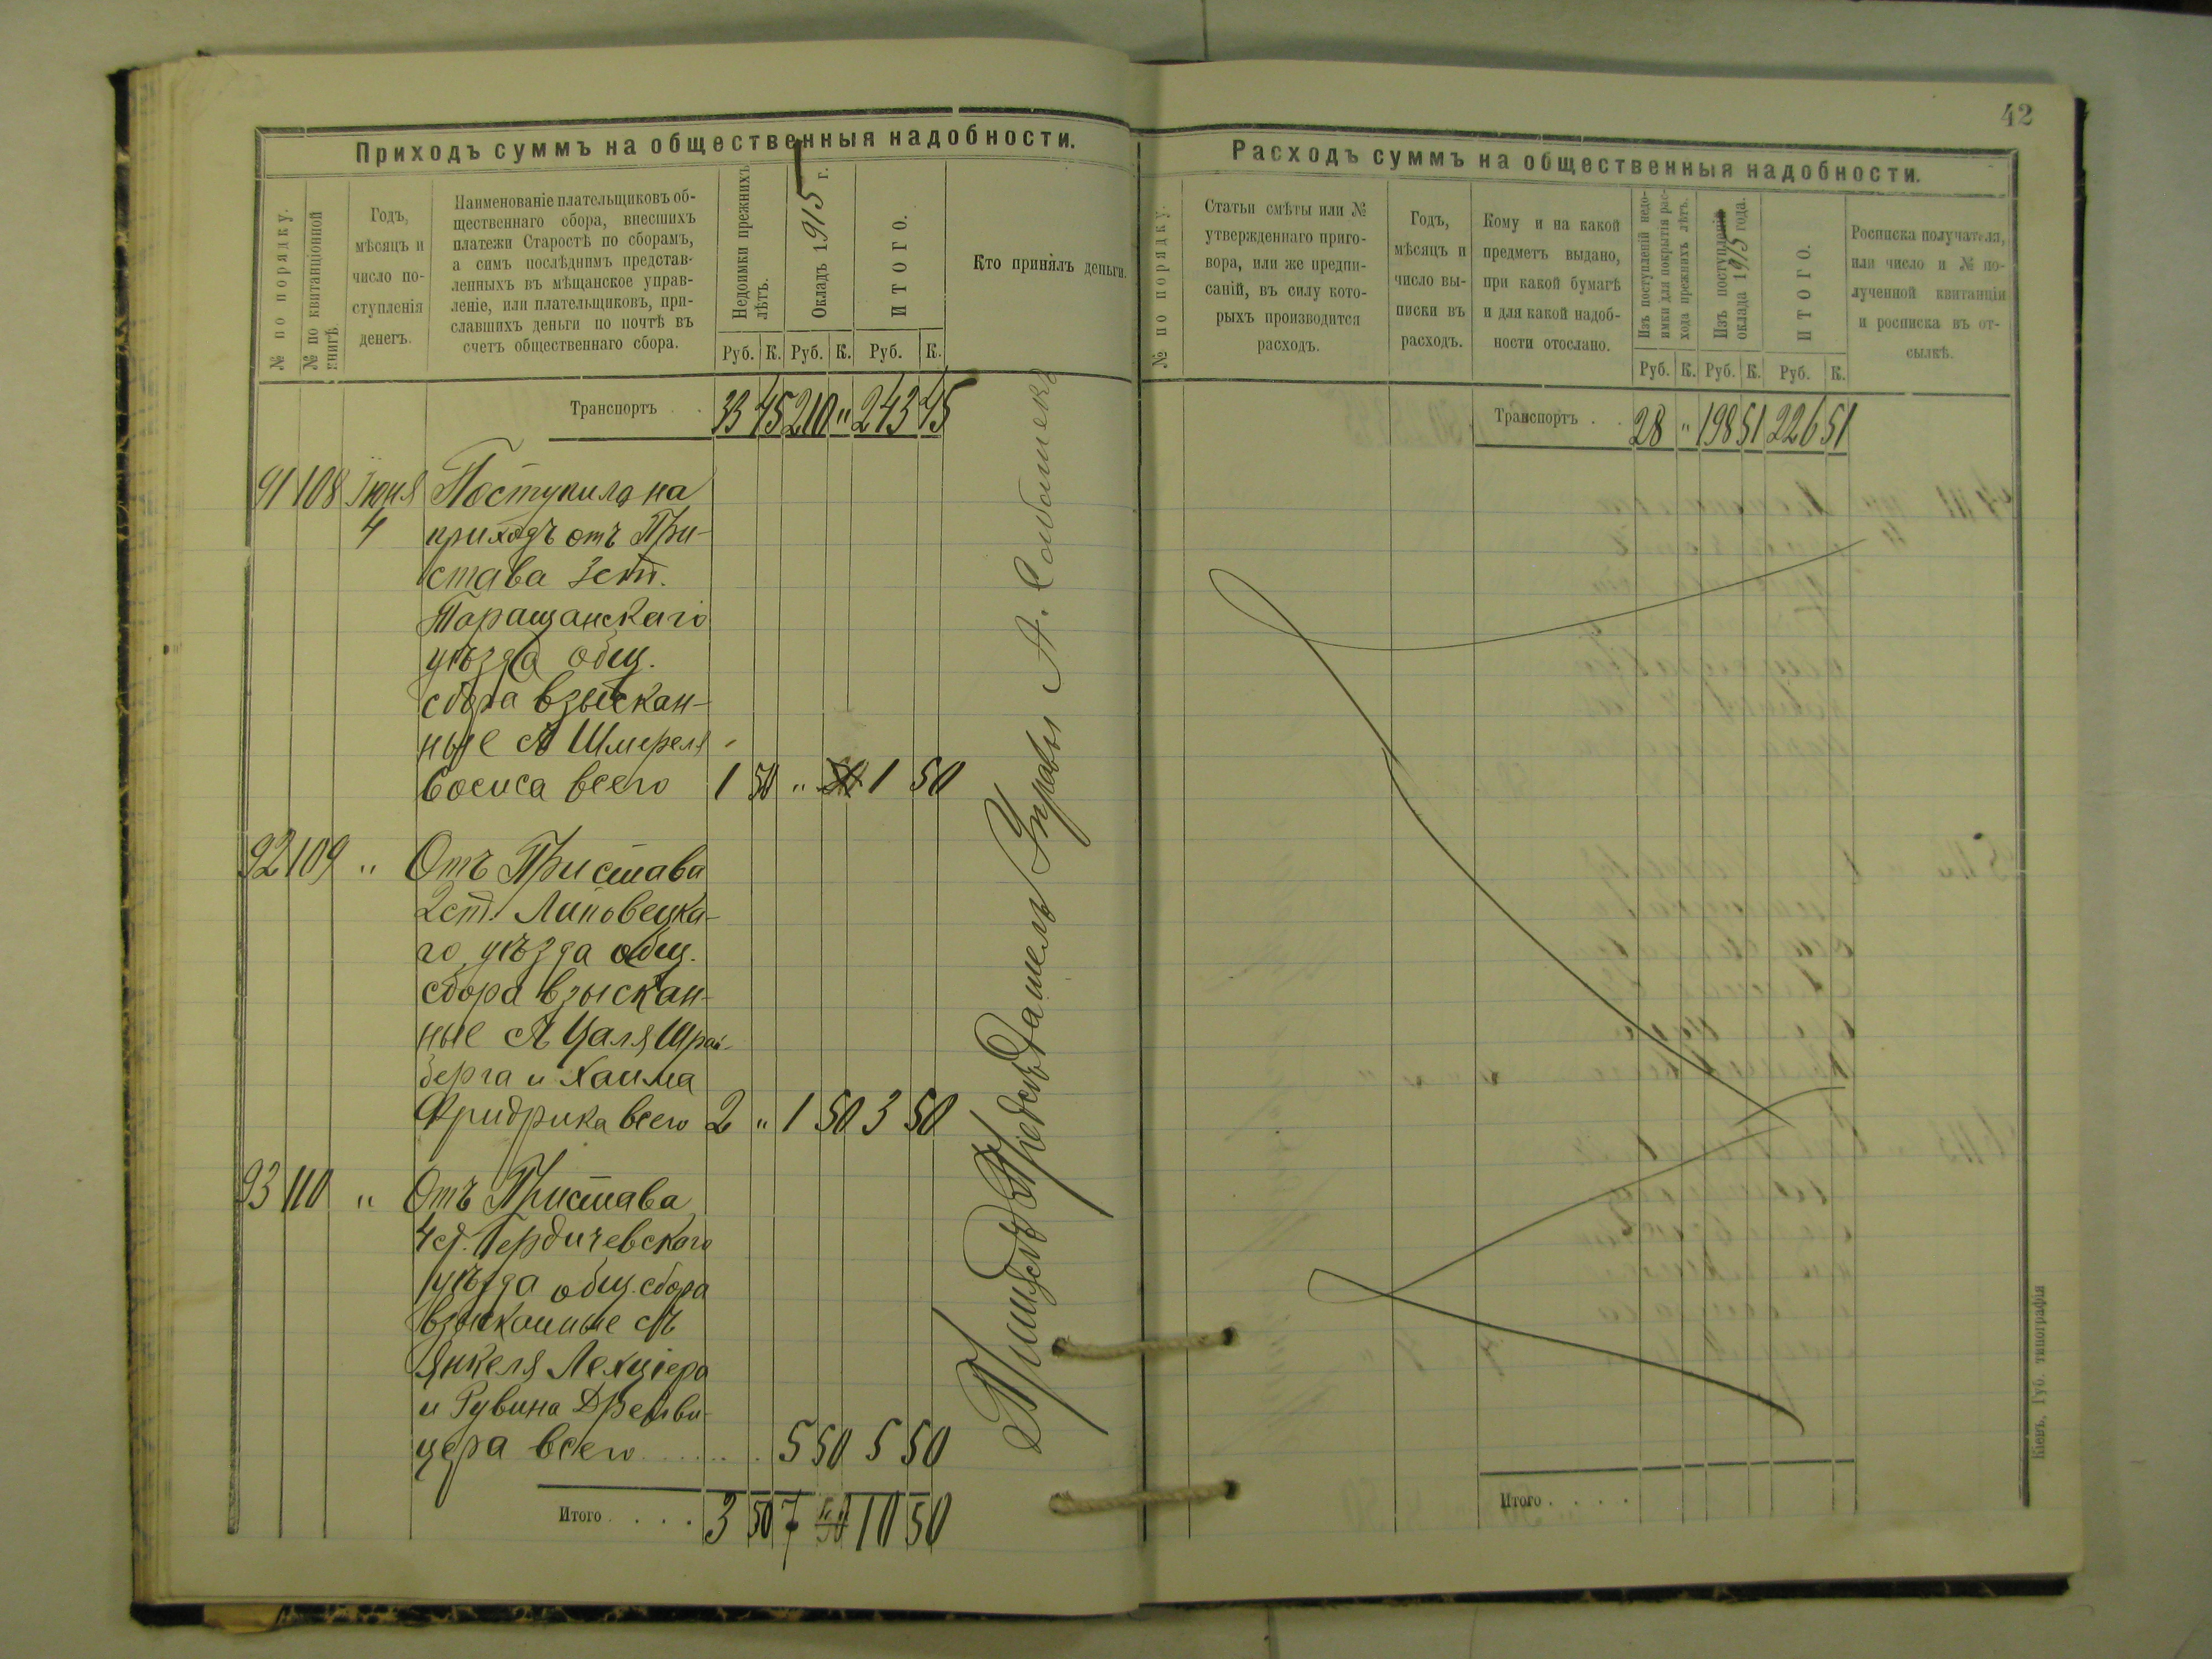 42
Приходъ суммъ на общественныя надобности.
№ по порядку.
№ по квитанціонной книгѣ.
Годъ,
мѣсяцъ и
число по-
ступленія
денегъ.
Наименованіе плательщиковъ об-
щественнаго сбора, внесшихъ
платежи Старостѣ по сборамъ,
а симъ послѣднимъ представ-
ленныхъ въ мѣщанское управ-
леніе, или плательщиковъ, при-
славшихъ деньги по почтѣ въ
счетъ общественнаго сбора.
Недоимки прежнихъ
лѣтъ.
Окладъ 1915 г.
ИТОГО.
Кто принялъ деньги.
Руб. К. Руб. К. Руб. К.
Транспортъ . . 33 45 210 " 243 45
91 108 Іюня Поступило на
4 приходъ отъ При-
става 3 ст.
Таращанскаго
уѣзда общ.
сбора взыскан-
ные съ Шмереля
Босиса всего 1 50 " 1 50
92 109 " Отъ Пристава
2 ст. Липовецка-
го уѣзда общ.
сбора взыскан-
ные съ Цаля Шрай-
берга и Хаима
Фридрика всего 2 " 1 50 3 50
93 110 " Отъ Пристава
4 ст. Бердичевскаго
уѣзда общ. сбора
взысканные съ
Янкеля Лехціера
и Рувина
цера всего . . . . . . 5 50 5 50
Итого . . . . 3 50 7 " 10 50
Управы А.
Расходъ суммъ на общественныя надобности.
№ по порядку.
Статьи смѣты или №
утвержденнаго приго-
вора, или же предпи-
саній, въ силу кото-
рыхъ производится
расходъ.
Годъ,
мѣсяцъ и
число вы-
писки въ
расходъ.
Кому и на какой
предметъ выдано,
при какой бумагѣ
и для какой надоб-
ности отослано.
Изъ поступленій недо-
имки для покрытія рас-
хода прежнихъ лѣтъ.
Изъ поступленій
оклада 1915 года.
ИТОГО.
Росписка получателя,
или число и № по-
лученной квитанціи
и росписка въ от-
сылкѣ.
Руб. К. Руб. К. Руб. К.
Транспортъ . . 28 " 198 51 226 51
Итого . . . .
Кіевъ, Губ. типографія